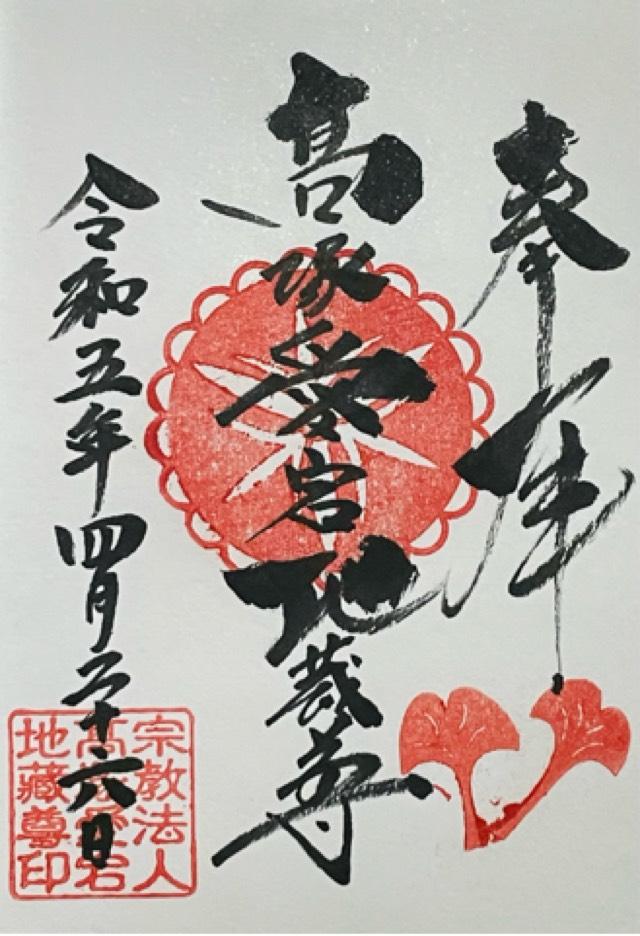 奉拝
髙塚愛宕地蔵尊
令和五年四月二十六日
宗教法人
髙塚愛宕
地蔵尊印